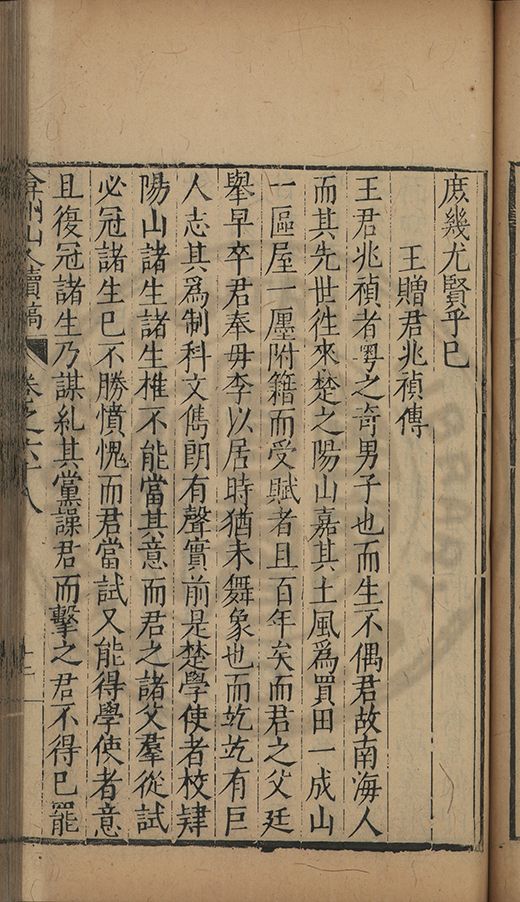 庶幾尤賢乎已
王贈君兆禎傳
王君兆禎者粵之奇男子也而生不偶君故南海人
而其先世徃來楚之陽山嘉其土風爲買田一成山
一區屋一廛附籍而受賦者且百年矣而君之父廷
舉早卒君奉母李以居時猶未舞象也而訖訖有巨
人志其爲制科文雋朗有聲實前是楚學使者校肄
陽山諸生諸生椎不能當其意而君之諸父羣從試
必冠諸生已不勝憤愧而君當試又能得學使者意
且復冠諸生乃謀糺其黨譟君而擊之君不得已罷
弇州山人續稿 卷之六十八 十二